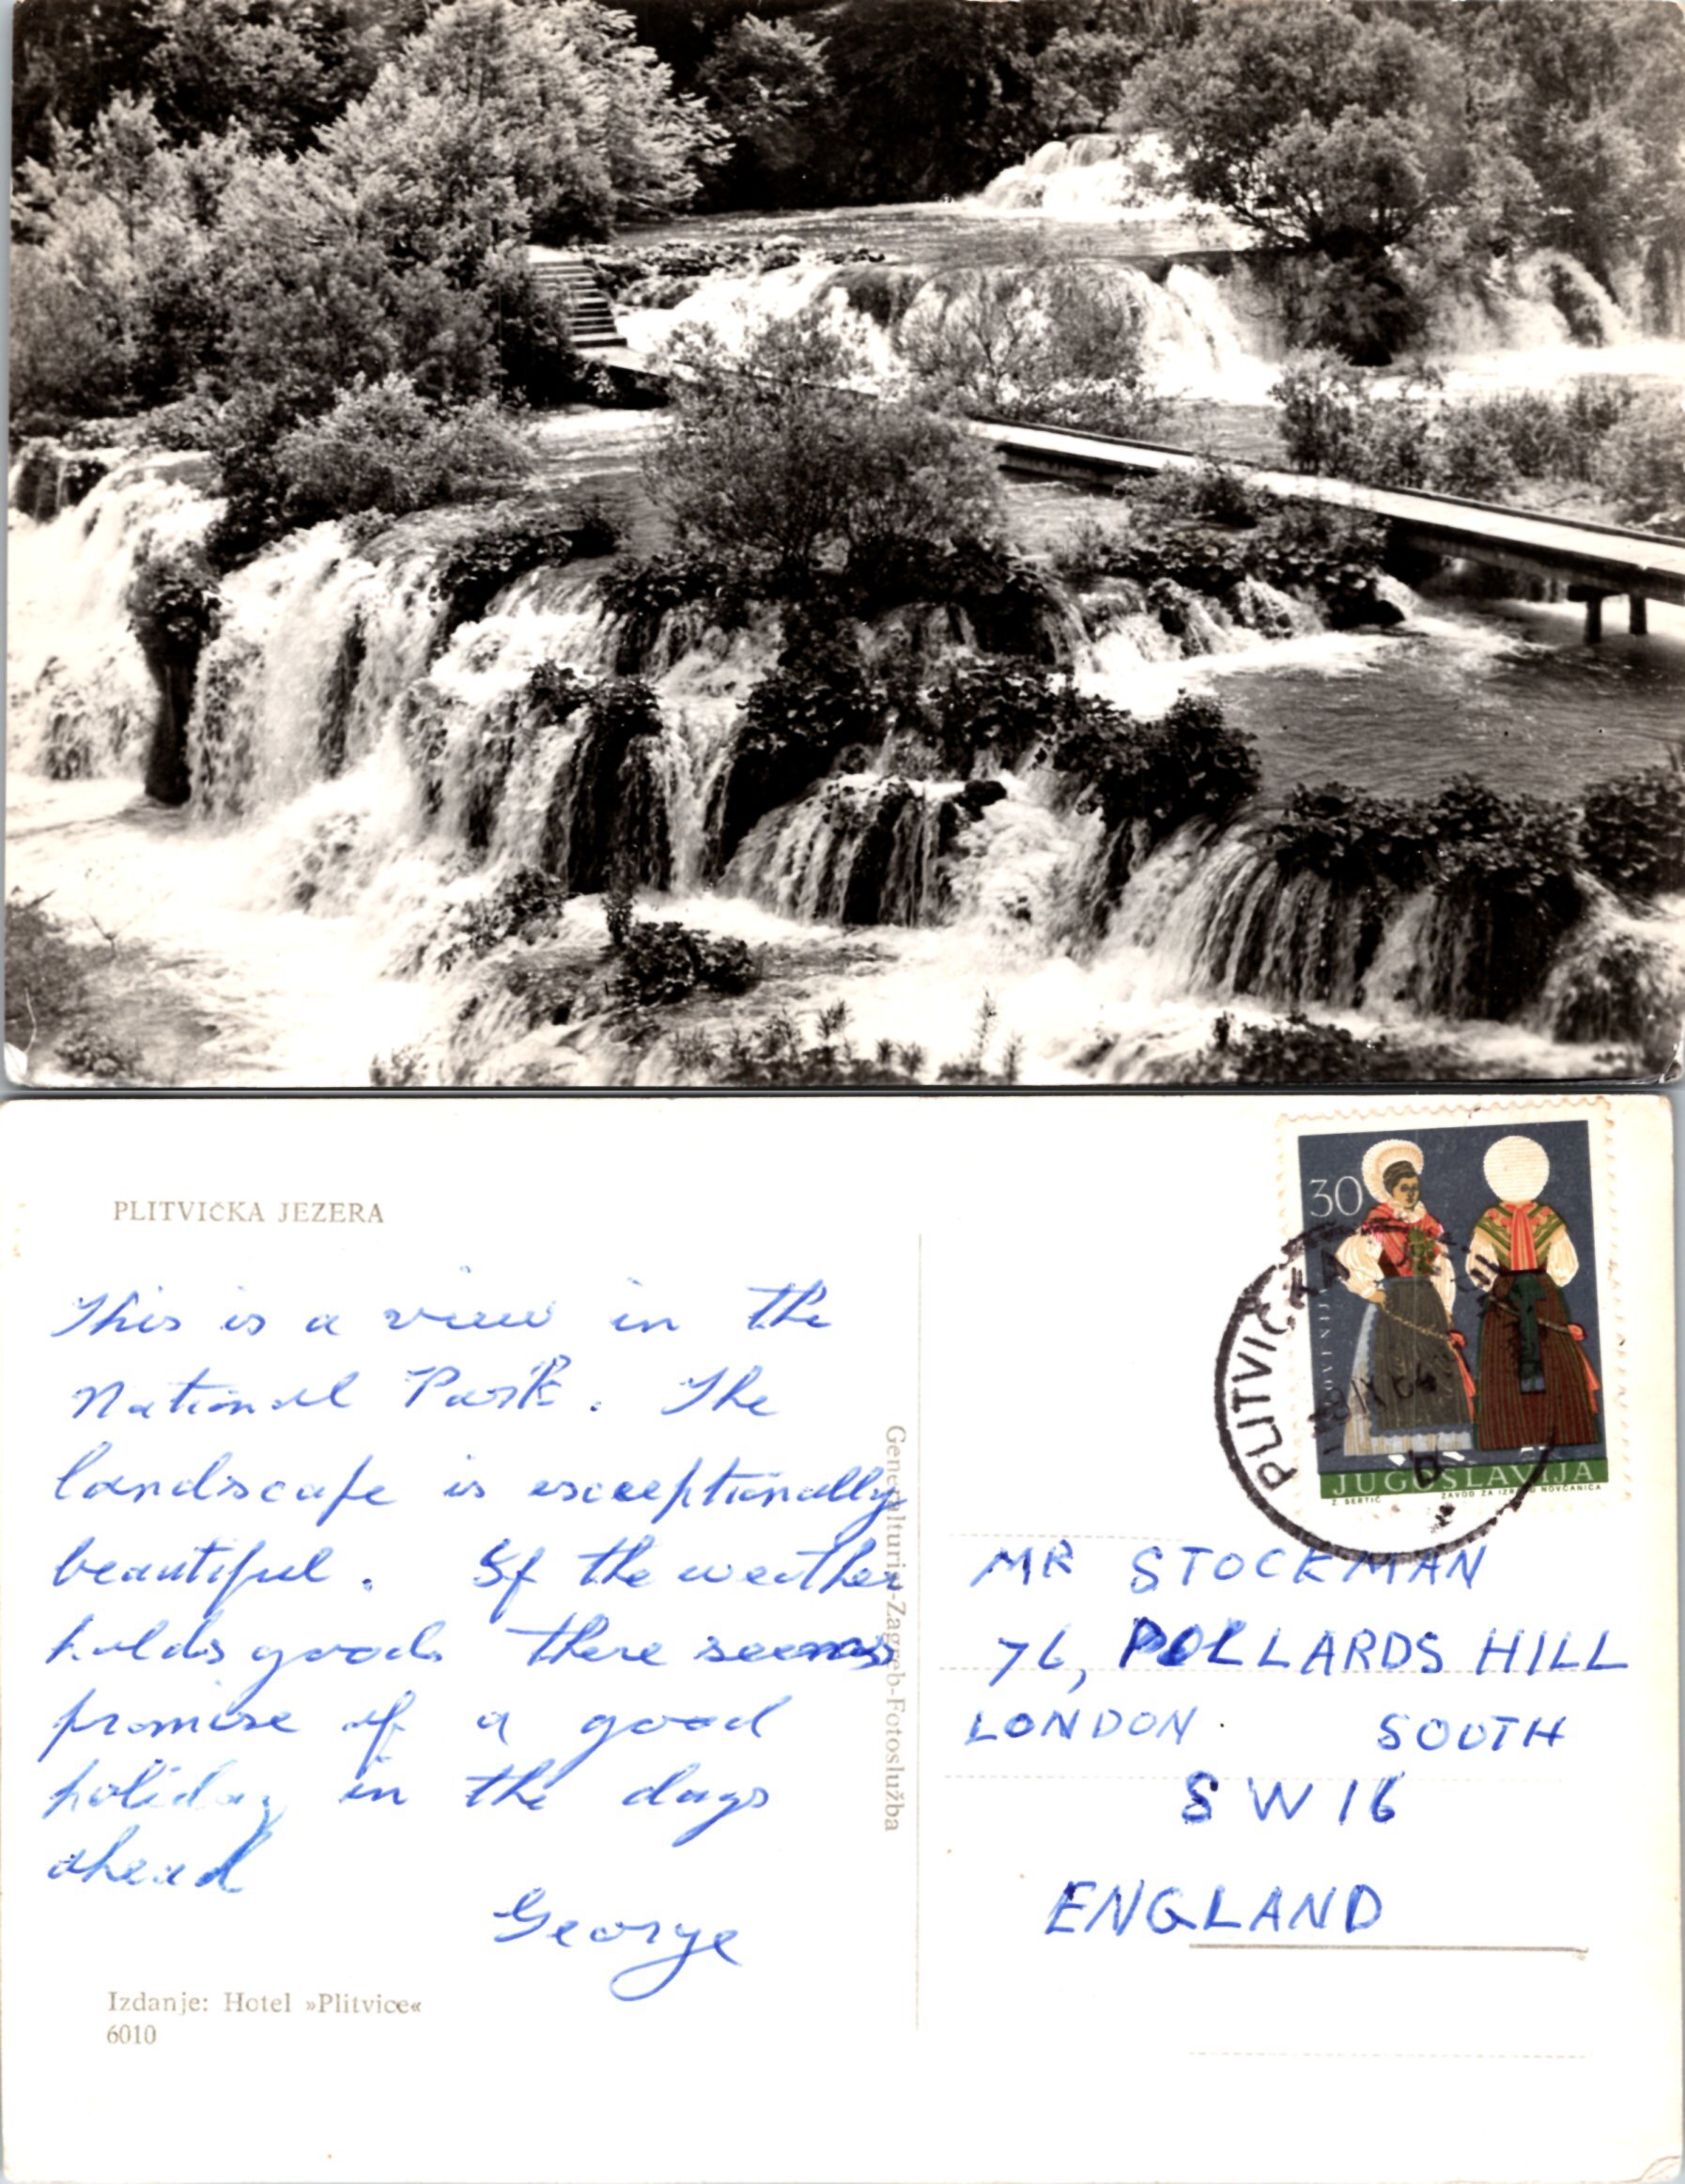 PLITVIČKA JEZERA
This is a view in the
National Park. The
landscape is exceptionally
beautiful. If the weather
holds good there seems
promise of a good
holiday in the days
ahead
George
Izdanje: Hotel »Plitvice«
6010
Generalturist-Zagreb-Fotoslužba
30
JUGOSLAVIJA
Z. SERTIĆ ZAVOD ZA NOVČANICA
PLITVIČKA
MR STOCKMAN
76, POLLARDS HILL
LONDON. SOUTH
SW16
ENGLAND